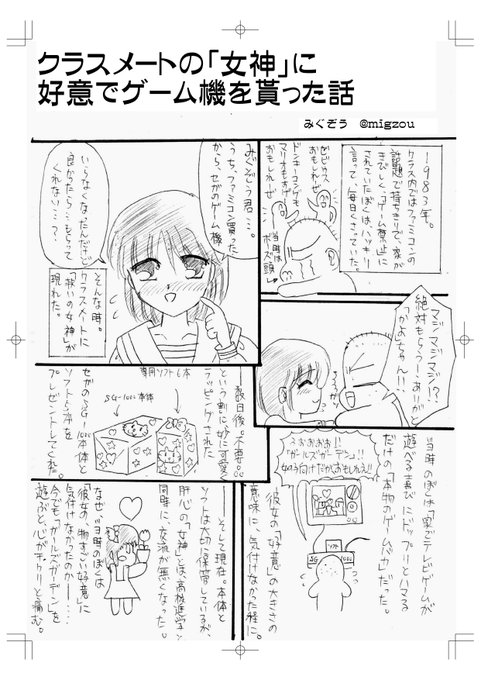 クラスメートの「女神」に
好意でゲーム機を貰った話
みぐぞう @migzou
1983年。
クラス内ではファミコンの
話題で持ちきりで、家が
きびしく、「ゲーム禁止」に
されていたぼくは、ハッキリ
言って、毎日くさっていた。
ゼビウス
おもしれぇ
ドンキーコングも
マリオもすげぇ
おもしれぇぜ
当時は
ボーズ頭
みぐぞう君…。
うち、ファミコン買った
から、セガのゲーム機
いらなくなったんだけど
良かったら…もらって
くれない…?
そんな時。
クラスメートに
「救いの女神」が
現れた。
マジ!マジ!マジ!?
絶対もらう!ありが
「かよ」ちゃん!!
数日後、「不要」
という割に妙に可愛く
ラッピングされた
セガのSG-1000本体と
ソフト6本を
プレゼントしてくれた。
専用ソフト6本
SG-1000本体
当時のぼくは「家でテレビゲームが
遊べる喜び」にドップリとハマる
だけの「本物のゲームバカ」だった。
うおおおお!!
「ガールズガーデン」!!
女の子向けだがおもしれえ!!
SG
1000
彼女の「好意」の大きさの
意味に、気付けなかった程に。
――そして現在。本体と
ソフトは大切に保管しているが、
肝心の「女神」とは、高校進学と
同時に交流が無くなった。
なぜ、当時のぼくは
「彼女の、物すごい好意」に
気付けなかったのか――
今でも「ガールズガーデン」を
遊ぶと、心がチクリと痛む。